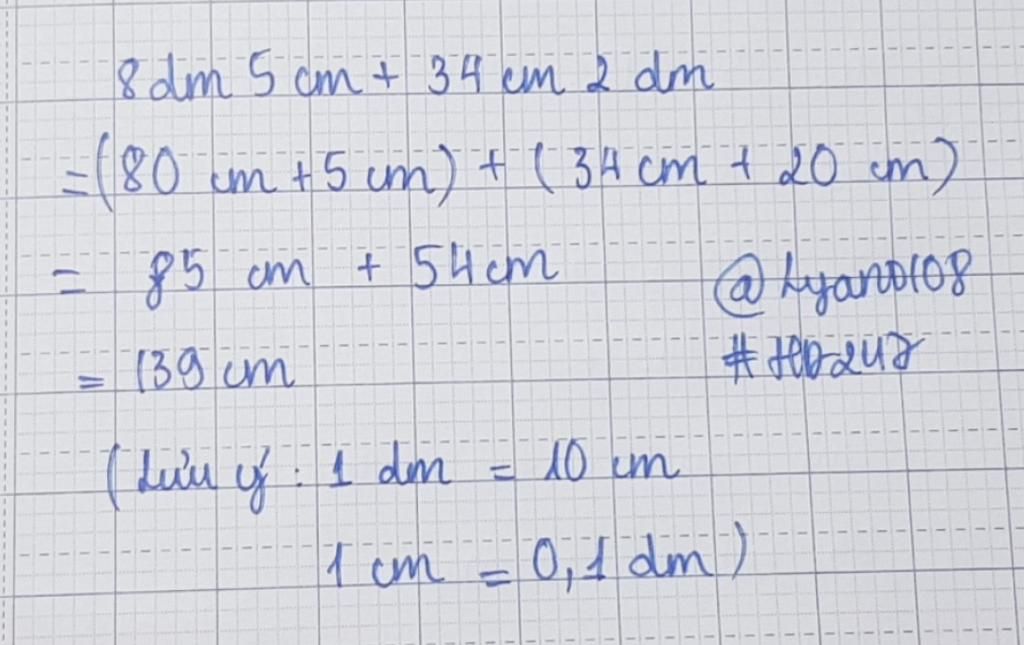 8dm 5 cm + 34 cm 2 dm
= (80 cm + 5 cm) + (34 cm + 20 cm)
= 85 cm + 54 cm
@Lyano108
= 139 cm
(Lưu ý : 1 dm = 10 cm
1 cm = 0,1 dm)